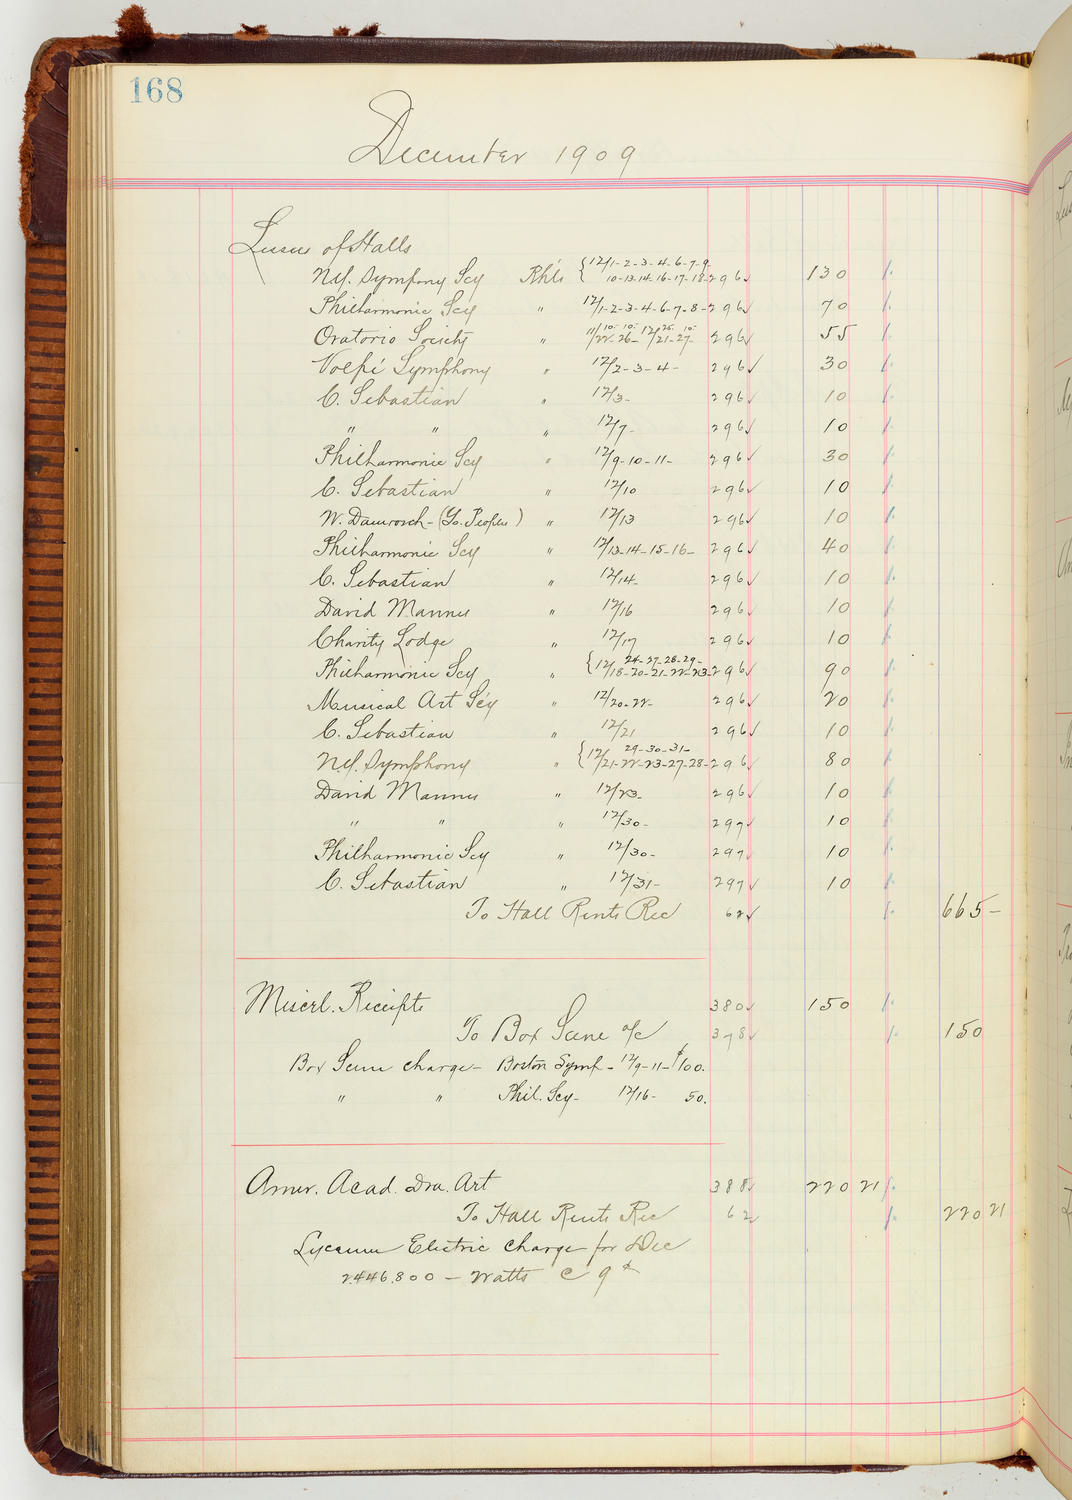 168
December 1909
Lessees of Halls
N.Y. Symphony Scy Rhls { 12/1-2-3-4-6-7-9- 10-13-14-16-17-18- 296 ✓ 130
Philharmonic Scy " 12/1-2-3-4-6-7-8- 296 ✓ 70
Oratorio Society " 11/22-26- 12/21-27- 296 ✓ 55
Volpé Symphony " 12/2-3-4- 296 ✓ 30
C. Sebastian " 12/3- 296 ✓ 10
" " " 12/7- 296 ✓ 10
Philharmonic Scy " 12/9-10-11- 296 ✓ 30
C. Sebastian " 12/10 296 ✓ 10
W. Damrosch-(Yo. Peoples) " 12/13 296 ✓ 10
Philharmonic Scy " 12/13-14-15-16- 296 ✓ 40
C. Sebastian " 12/14- 296 ✓ 10
David Mannes " 12/16 296 ✓ 10
Charity Lodge " 12/17 296 ✓ 10
Philharmonic Scy " { 12/18-20-21-22-23- 24-27-28-29- 296 ✓ 90
Musical Art Scy " 12/20-22- 296 ✓ 20
C. Sebastian " 12/21 296 ✓ 10
N.Y. Symphony " { 12/21-22-23-27-28- 29-30-31- 296 ✓ 80
David Mannes " 12/23- 296 ✓ 10
" " " 12/30- 297 ✓ 10
Philharmonic Scy " 12/30- 297 ✓ 10
C. Sebastian " 12/31- 297 ✓ 10
To Hall Rents Rec 62 ✓ 665-
Miscel. Receipts 380 ✓ 150
To Box Scene a/c 378 ✓ 150
Box Scene charge- Boston Symf- 12/9-11- $100.
" " Phil. Scy- 12/16- 50.
Amer. Acad. Dra. Art 388 ✓ 220 21
To Hall Rents Rec 62 ✓ 220 21
Lyceum Electric charge for Dec
2.446.800 - watts @ 9¢